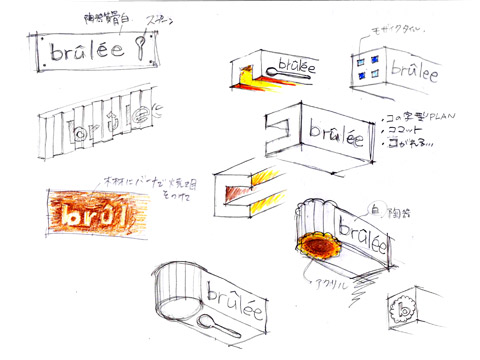 陶器質 白
スプーン
brûlée
brûlée
モザイクタイル
brûlée
brûlée
brûlée
・コの字型PLAN
・ココット
・コがれる…
木材にバーナーで焼目
をつけて
brûl
白
陶器
brûlée
アクリル
brûlée
b